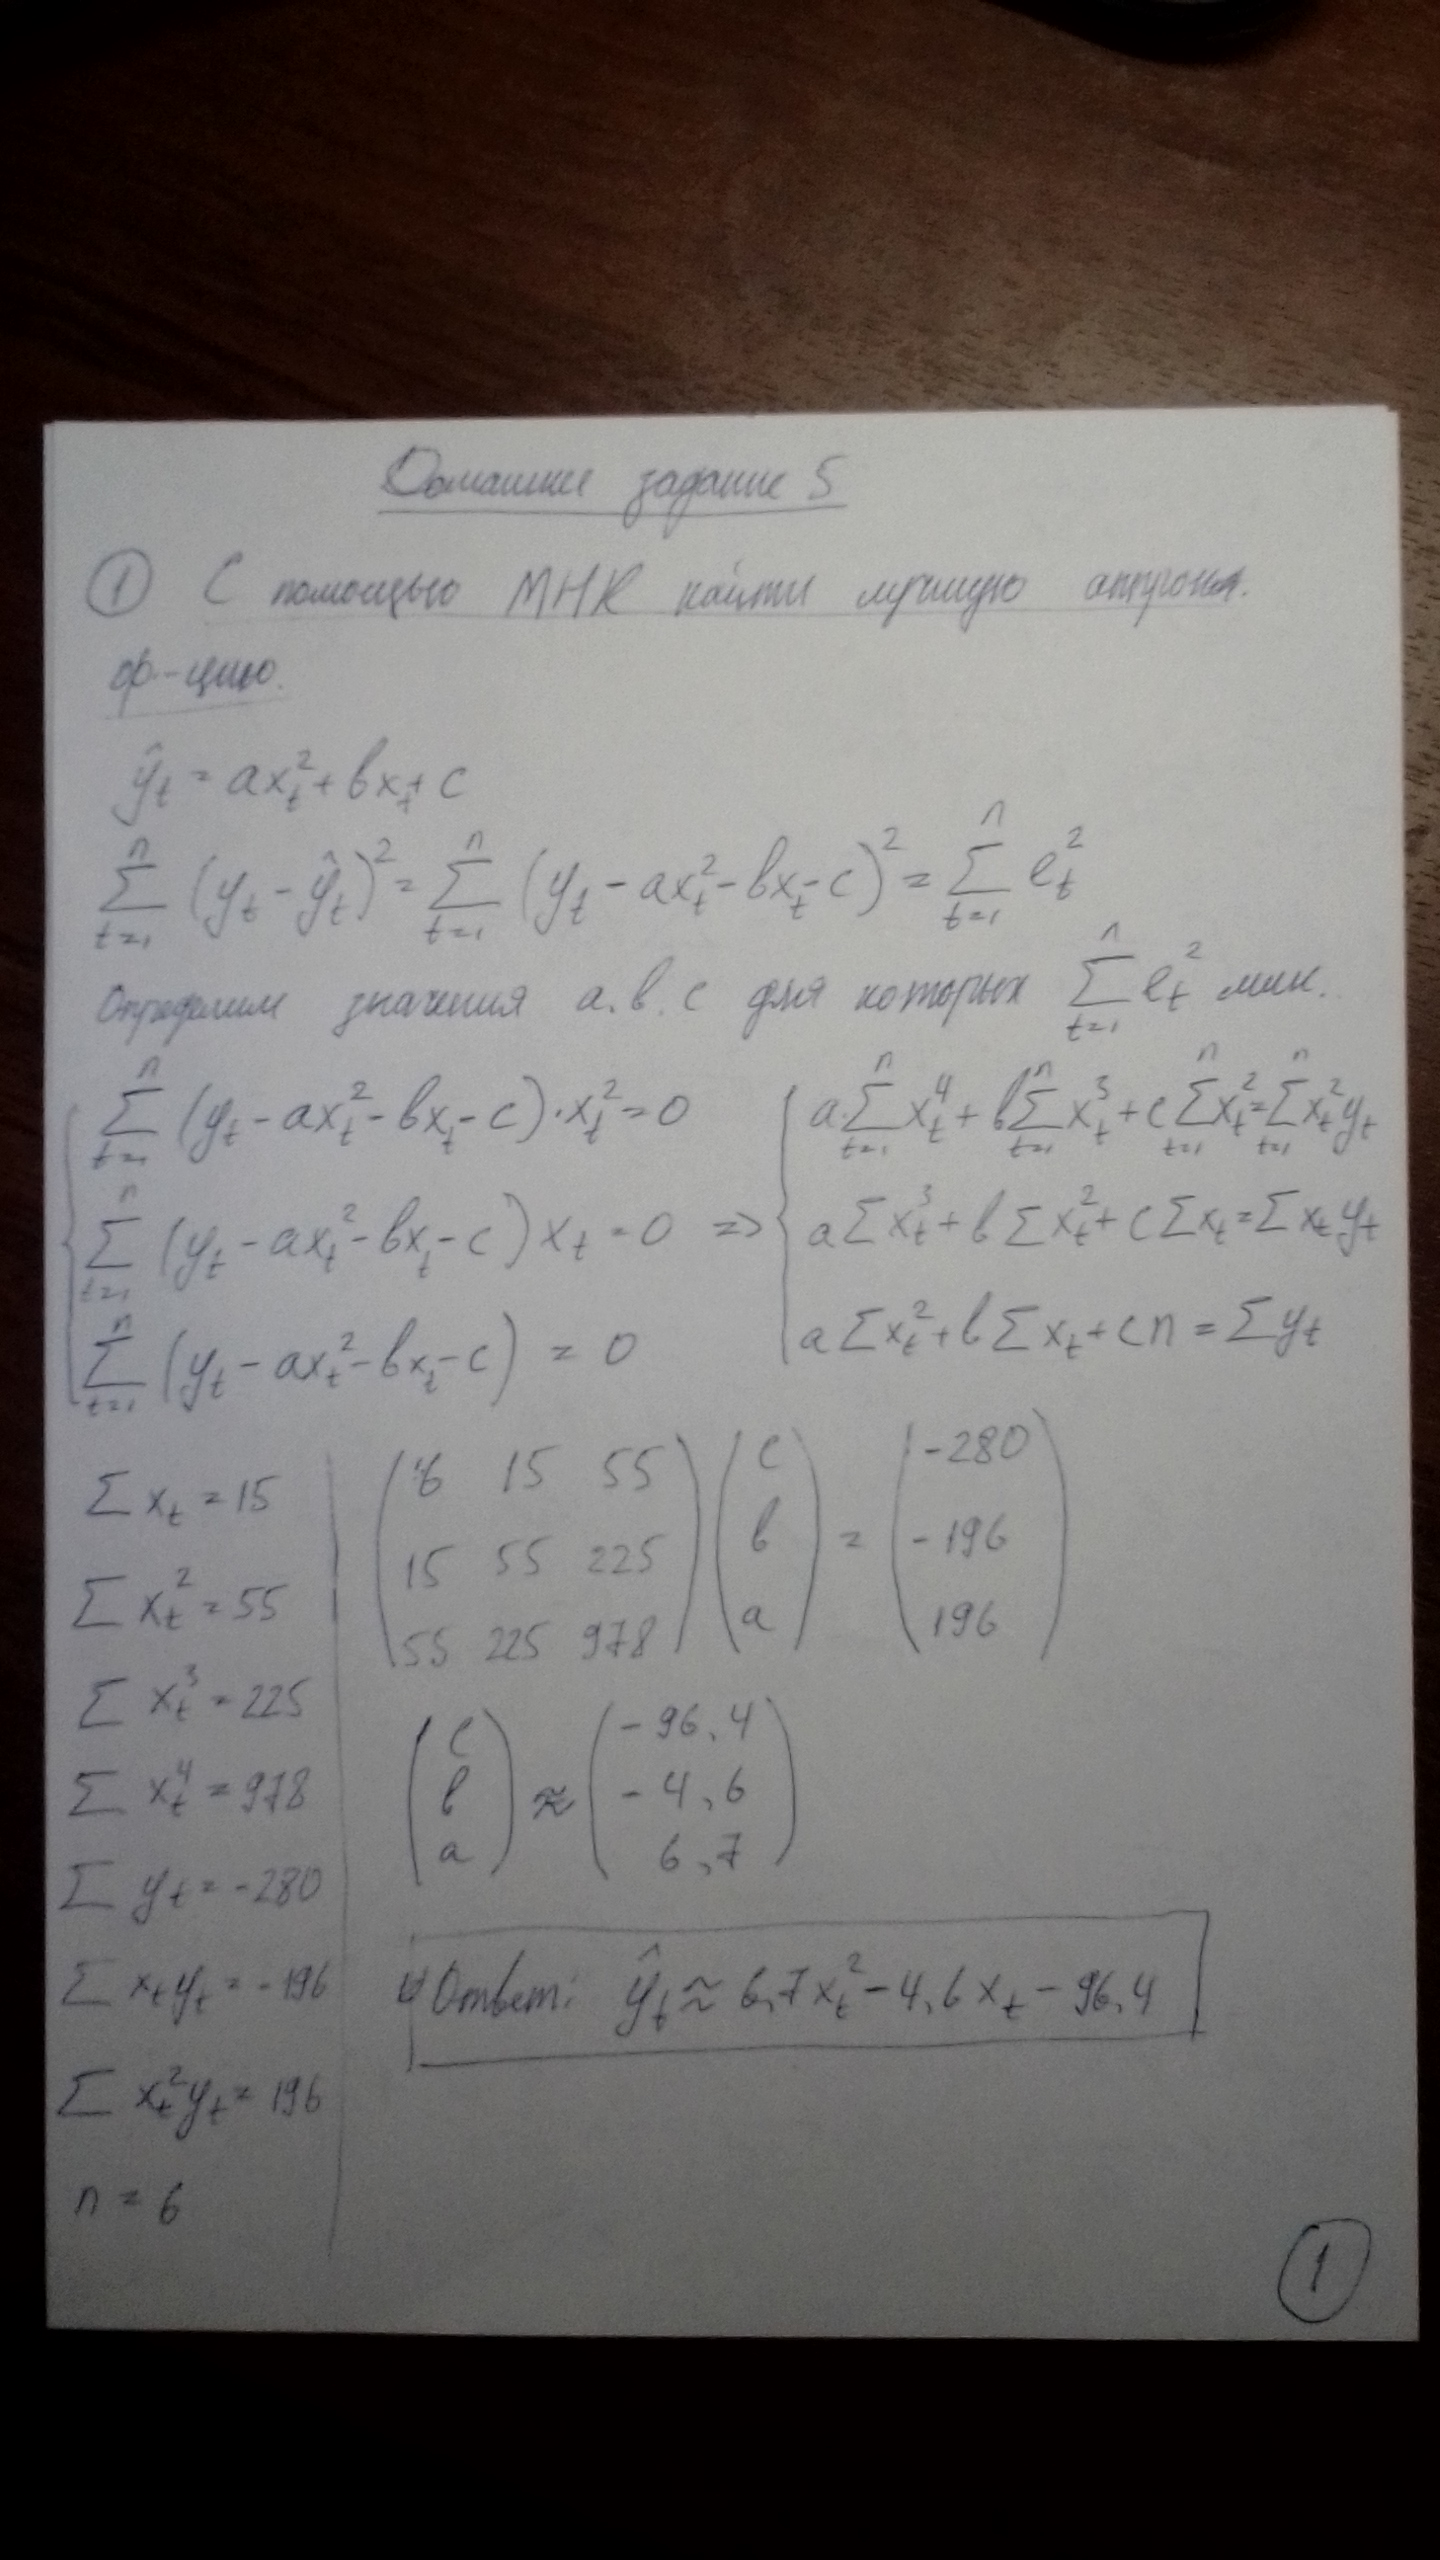 Домашнее задание 5
① С помощью МНК найти лучшую аппрокс.
ф-цию.
ŷₜ = axₜ² + bxₜ + c
∑ₜ₌₁ⁿ (yₜ - ŷₜ)² = ∑ₜ₌₁ⁿ (yₜ - axₜ² - bxₜ - c)² = ∑ₜ₌₁ⁿ eₜ²
Определим значения a, b, c для которых ∑ₜ₌₁ⁿ eₜ² мин.
{ ∑ₜ₌₁ⁿ (yₜ - axₜ² - bxₜ - c)·xₜ² = 0
∑ₜ₌₁ⁿ (yₜ - axₜ² - bxₜ - c) xₜ = 0
∑ₜ₌₁ⁿ (yₜ - axₜ² - bxₜ - c) = 0
=> { a·∑ₜ₌₁ⁿ xₜ⁴ + b∑ₜ₌₁ⁿ xₜ³ + c∑ₜ₌₁ⁿ xₜ² = ∑ₜ₌₁ⁿ xₜ²yₜ
a∑xₜ³ + b∑xₜ² + c∑xₜ = ∑xₜyₜ
a∑xₜ² + b∑xₜ + cn = ∑yₜ
∑ xₜ = 15
∑ xₜ² = 55
∑ xₜ³ = 225
∑ xₜ⁴ = 978
∑ yₜ = -280
∑ xₜyₜ = -196
∑ xₜ²yₜ = 196
n = 6
(6 15 55) (c) = (-280)
(15 55 225) (b) (-196)
(55 225 978) (a) (196)
(c) ≈ (-96,4)
(b) (-4,6)
(a) (6,7)
Ответ: ŷₜ ≈ 6,7xₜ² - 4,6xₜ - 96,4
1